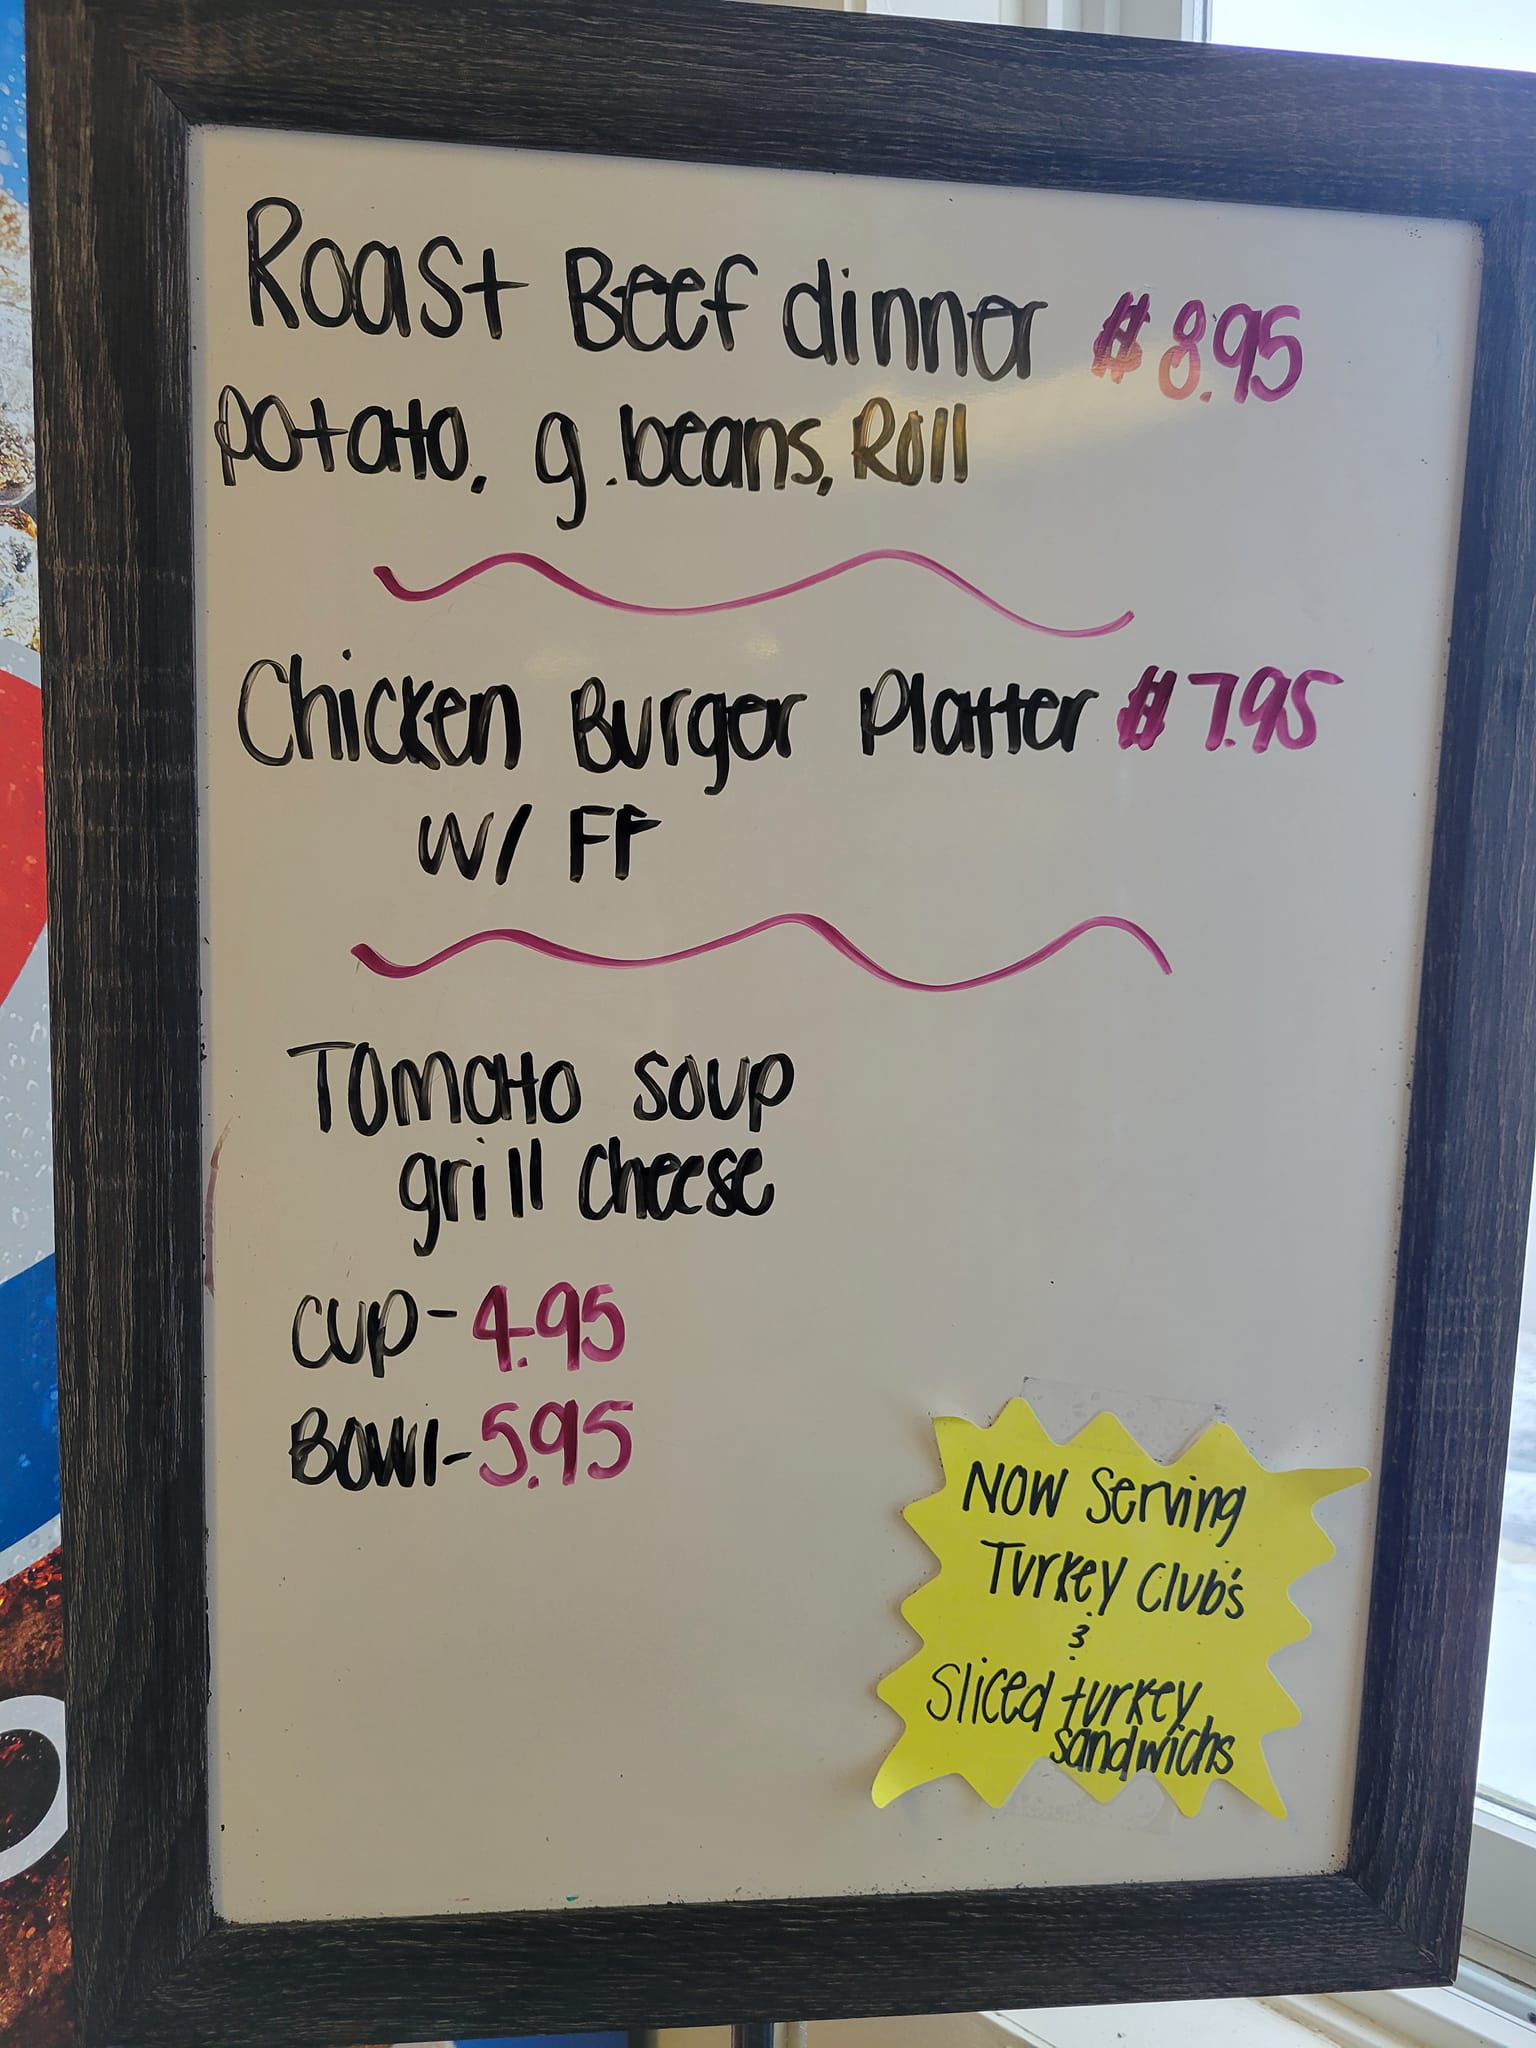 Roast Beef dinner $8.95
potato, g.beans, Roll
Chicken Burger Platter $7.95
w/ FF
Tomato soup
grill cheese
cup-4.95
Bowl-5.95
Now Serving
Turkey Club's
&
Sliced turkey
sandwichs